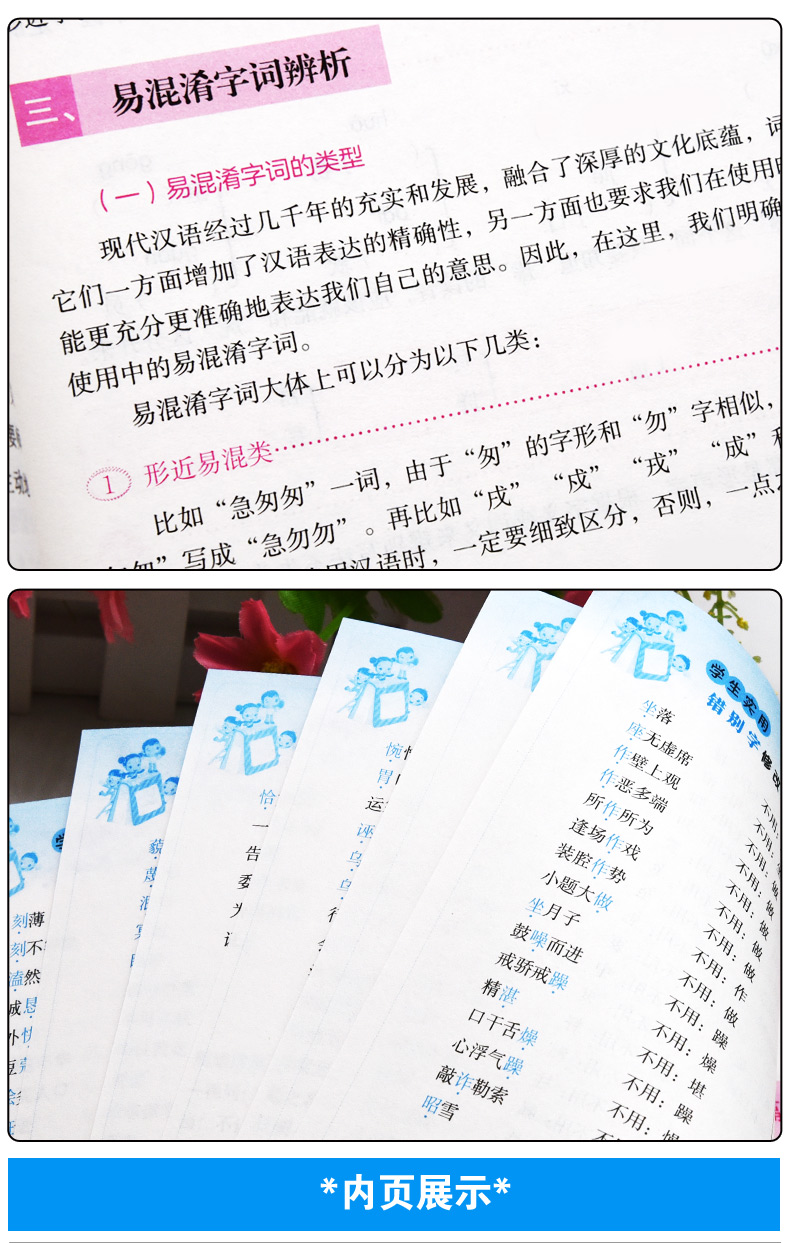 三、易混淆字词辨析
（一）易混淆字词的类型
现代汉语经过几千年的充实和发展，融合了深厚的文化底蕴，词
它们一方面增加了汉语表达的精确性，另一方面也要求我们在使用时
能更充分更准确地表达我们自己的意思。因此，在这里，我们明确
使用中的易混淆字词。
易混淆字词大体上可以分为以下几类：
1 形近易混类
比如“急匆匆”一词，由于“匆”的字形和“勿”字相似，
匆匆”写成“急勿勿”。再比如“戌”“戍”“戎”“成”和
用汉语时，一定要细致区分，否则，一点
学生实用
错别字修改
坐落
座无虚席
作壁上观
作恶多端
所作所为
逢场作戏
装腔作势
小题大做
坐月子
鼓噪而进
戒骄戒躁
精湛
口干舌燥
心浮气躁
敲诈勒索
昭雪
不用：
不用：
不用：
不用：做
不用：做
不用：做
不用：做
不用：作
不用：做
不用：躁
不用：燥
不用：堪
不用：躁
不用：
恰
一
告
委
为
惋
胃
运
诬
乌
乌
待
藐
蔑
混
刻薄
刻不
溘然
诚恳
*内页展示*